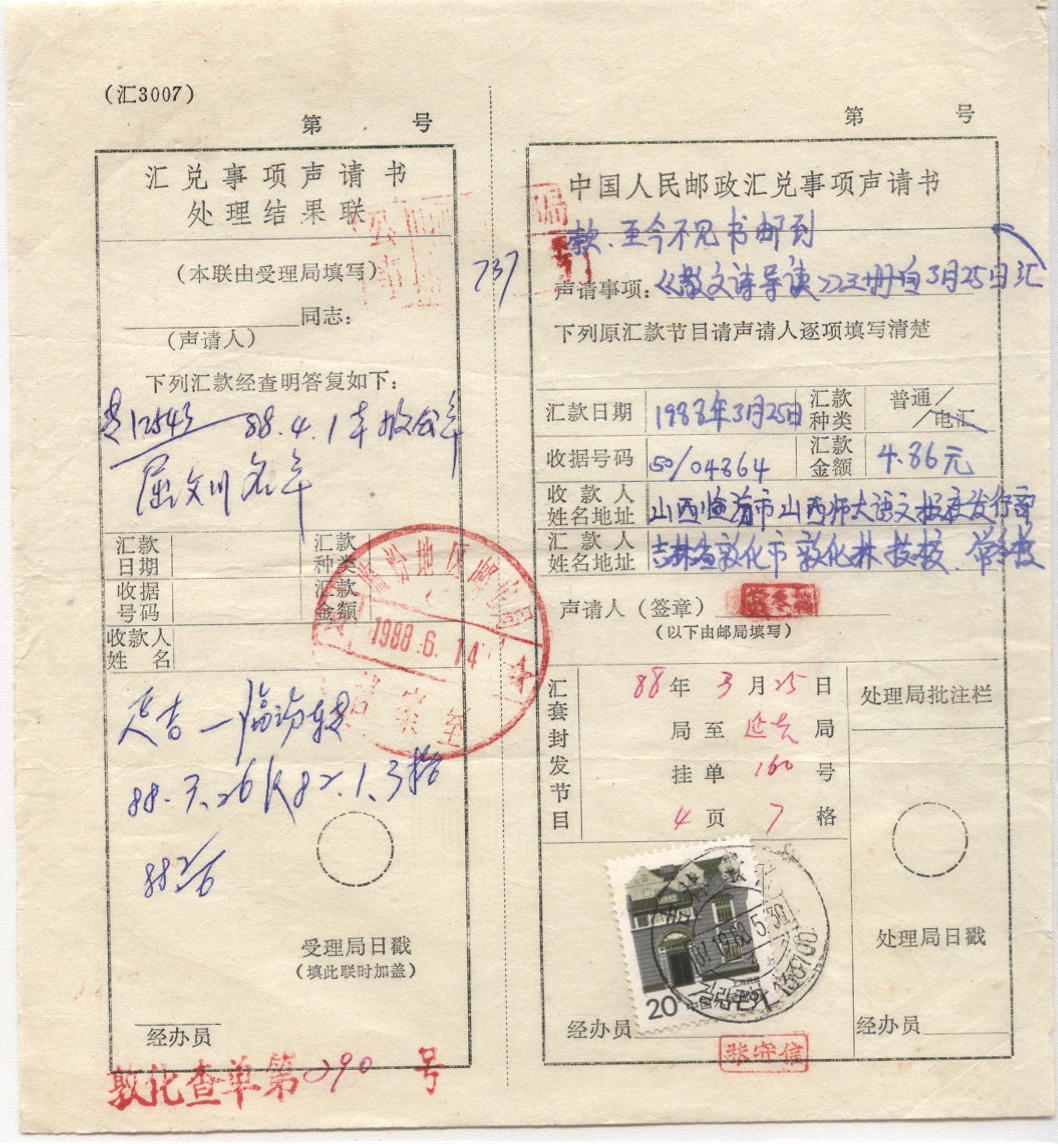 (汇3007)
第 号
汇兑事项声请书
处理结果联
(本联由受理局填写)
同志:
(声请人)
下列汇款经查明答复如下:
88.4.1
汇款日期
汇款种类
收据号码
汇款金额
收款人姓名
1988.6.14
延吉—临汾
88.
受理局日戳
(填此联时加盖)
经办员
敦化查单第290号
737
第 号
中国人民邮政汇兑事项声请书
款、至今不见书邮到
声请事项:《散文诗导读》三册自3月25日汇
下列原汇款节目请声请人逐项填写清楚
汇款日期 1988年3月25日 汇款种类 普通/电汇
收据号码 50/04864 汇款金额 4.86元
收款人姓名地址 山西临汾市山西师大语文报社发行部
汇款人姓名地址 吉林省敦化市敦化林技校
声请人(签章)
(以下由邮局填写)
汇套封发节目
88年3月25日
局至延吉局
挂单160号
4页7格
处理局批注栏
处理局日戳
20
中国邮政
吉林敦化
1988.5.30
133700
经办员
张守信
经办员